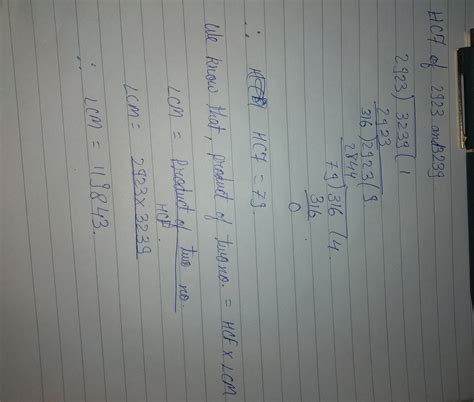 HCF of 2923 and 3239
2923) 3239 (1
2923
316) 2923 (9
2844
79) 316 (4.
316
0
∴ HCF = 79.
We know that, product of two no. = HCF x LCM
LCM = Product of two no.
HCF
LCM = 2923 x 3239
∴ LCM = 119843.